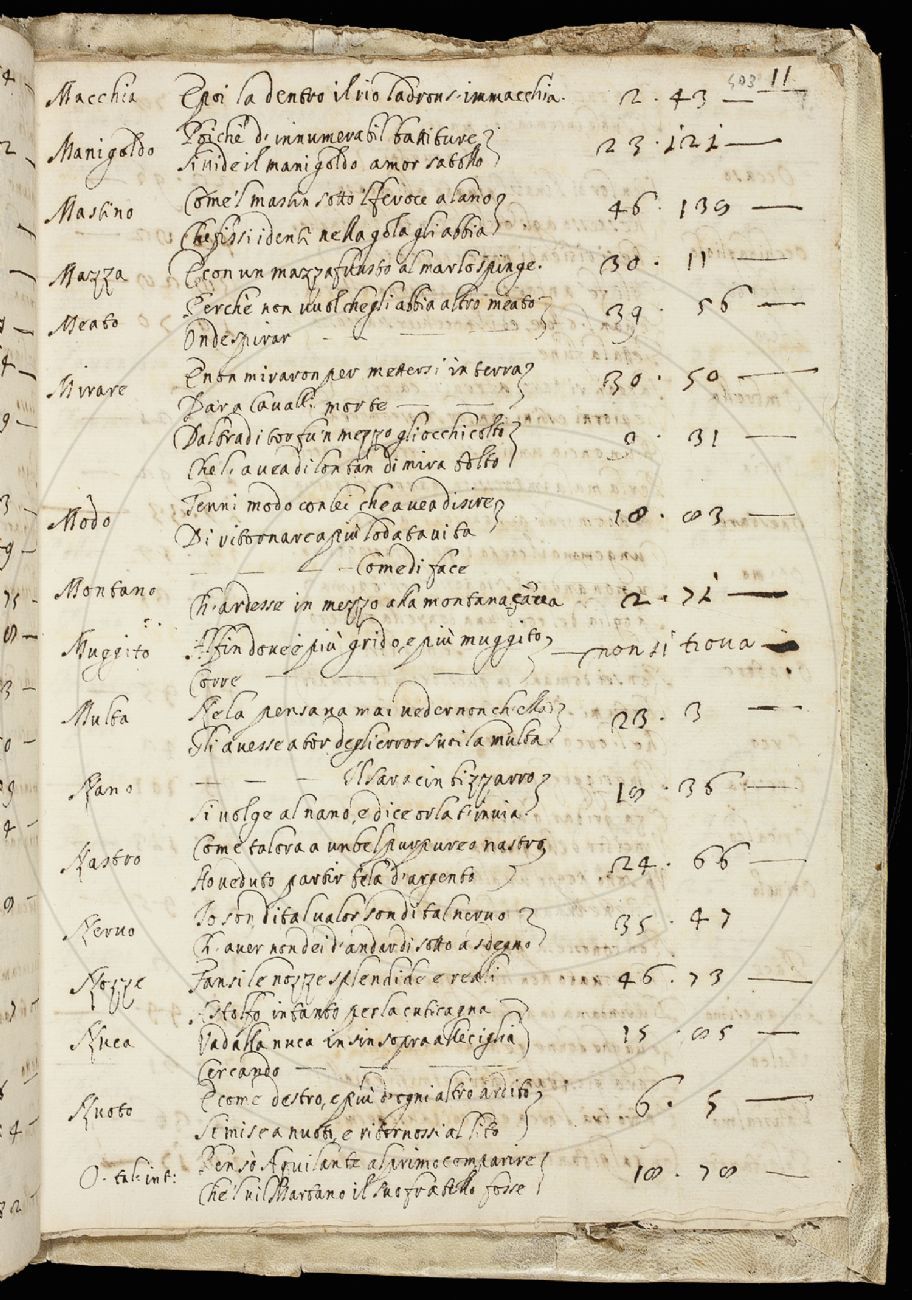 503 11
Macchia E poi la dentro il rio ladron s'immacchia. 2 . 43 —
Manigoldo Poiche d'innumerabil battiture
Si vide il manigoldo amor satollo 23 . 121 —
Mastino Come'l mastin sotto'l feroce alano
Che fissi i denti nella gola gli abbia 46 . 139 —
Mazza E con un mazzafrusto al mar lo spinge. 30 . 11 —
Meato Perche non vuol che gli abbia altro meato
Onde spirar — — — 39 . 56 —
Mirare E non miraron per mettersi in terra
Dar a Cavalli morte — — 30 . 50 —
Dal traditor fu'n mezzo gli occhi colto
Che l'avea di lontan di mira tolto 31 —
Modo Tenni modo con lei che avea disire
Di ritornare a più lodata vita 18 . 83 —
— — Come di face
Montano Ch'ardesse in mezzo alla montana cava 2 . 71 —
Muggito Alfin dov'è più grido, e più muggito
Corre — — — — non si trova —
Multa Ne la pensava mai veder non ch'ella
Gli avesse a tor degli error suoi la multa. 23 . 3 —
Nano — — — Il Saracin bizzarro
Si volge al nano, e dice or la t'invia. 18 . 36 —
Nastro Come talora a un bel purpureo nastro
Ho veduto partir tela d'argento 24 . 66 —
Nervo Io son di tal valor son di tal nervo
Ch'aver non dei d'andar di sotto a sdegno 35 . 47
Nozze Fansi le nozze splendide e reali 46 . 73 —
Astolfo intanto per la cuticagna
Nuca Va dalla nuca insin sopra alle ciglia 15 . 85 —
Cercando — — — —
Nuoto E come destro, e più d'ogni altro ardito
Si mise a nuoto, e ritornossi al lito 6 . 5 —
O. tal int: Pensò Aquilante al primo comparire
Che'l vil Martano il suo fratello fosse 18 . 78 —